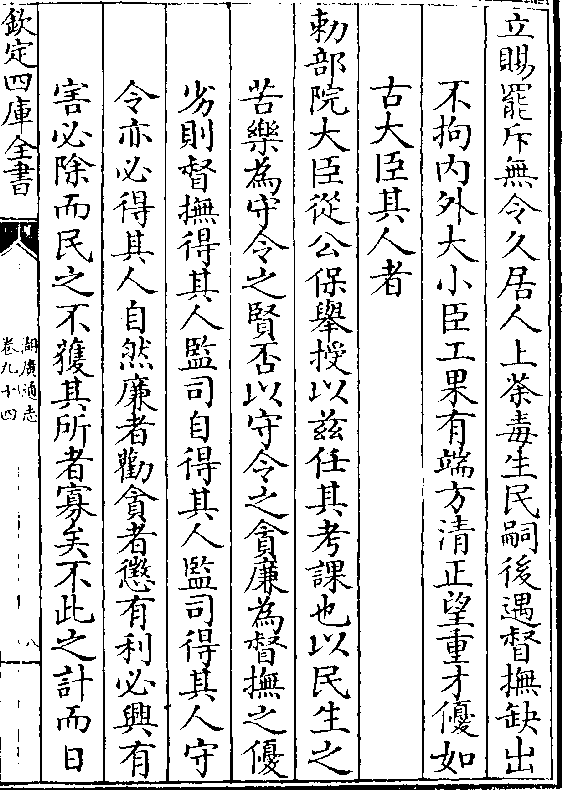 立賜罷斥無令久居人上荼毒生民嗣後遇督撫缺出
不拘內外大小臣工果有端方清正望重才優如
古大臣其人者
勅部院大臣從公保舉授以茲任其考課也以民生之
苦樂為守令之賢否以守令之貪廉為督撫之優
劣則督撫得其人監司自得其人監司得其人守
令亦必得其人自然廉者勸貪者懲有利必興有
害必除而民之不獲其所者寡矣不此之計而日
欽定四庫全書
湖廣通志
卷九十四
八